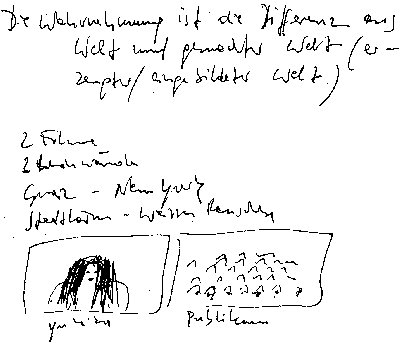 Die Wahrnehmung ist die Differenz aus
Welt und gemachter Welt (er-
zeugter/eingebildeter Welt.)
2 Filme
2 Leinwände
Graz - New York
Stadtlärm - Weißes Rauschen
Publikum